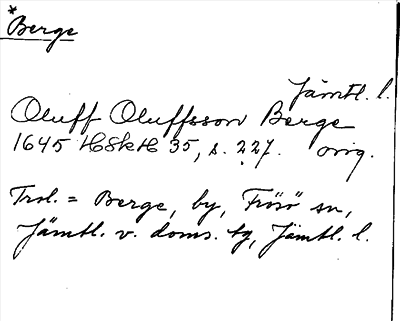 * Berge
Jämtl. l.
Oluff Oluffsson Berge
1645 HSkH 35, s. 227. orig.
Trol. = Berge, by, Frösö sn,
Jämtl. v. doms. tg, Jämtl. l.